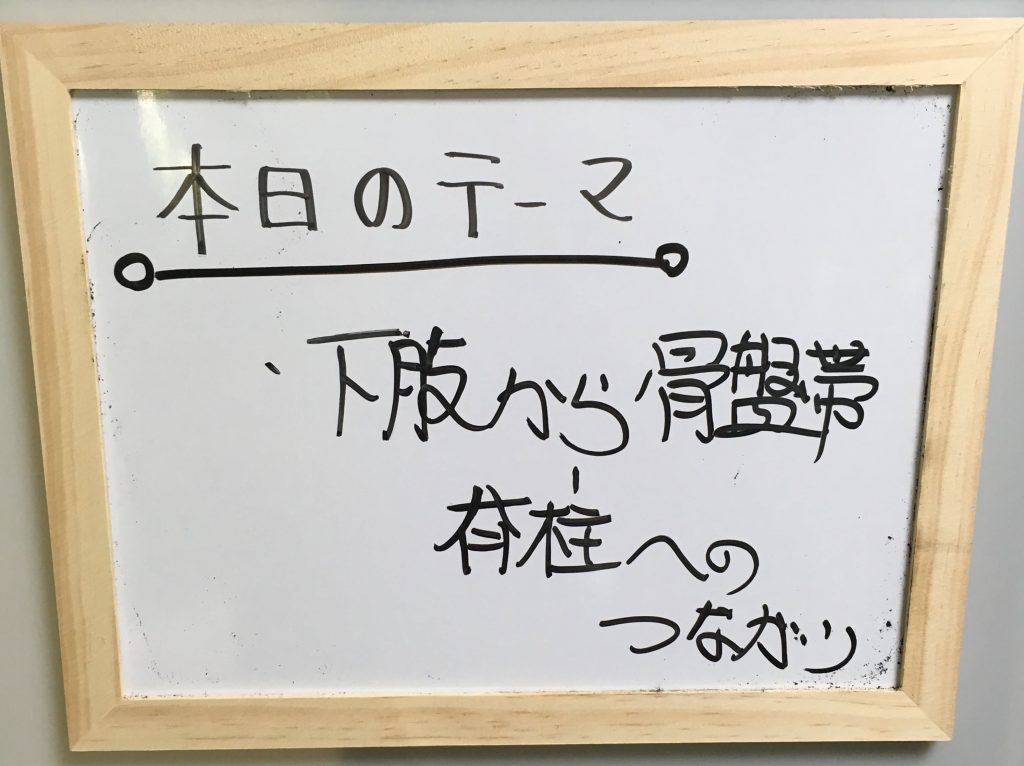 本日のテーマ
下腹から骨盤帯
脊柱への
つながり